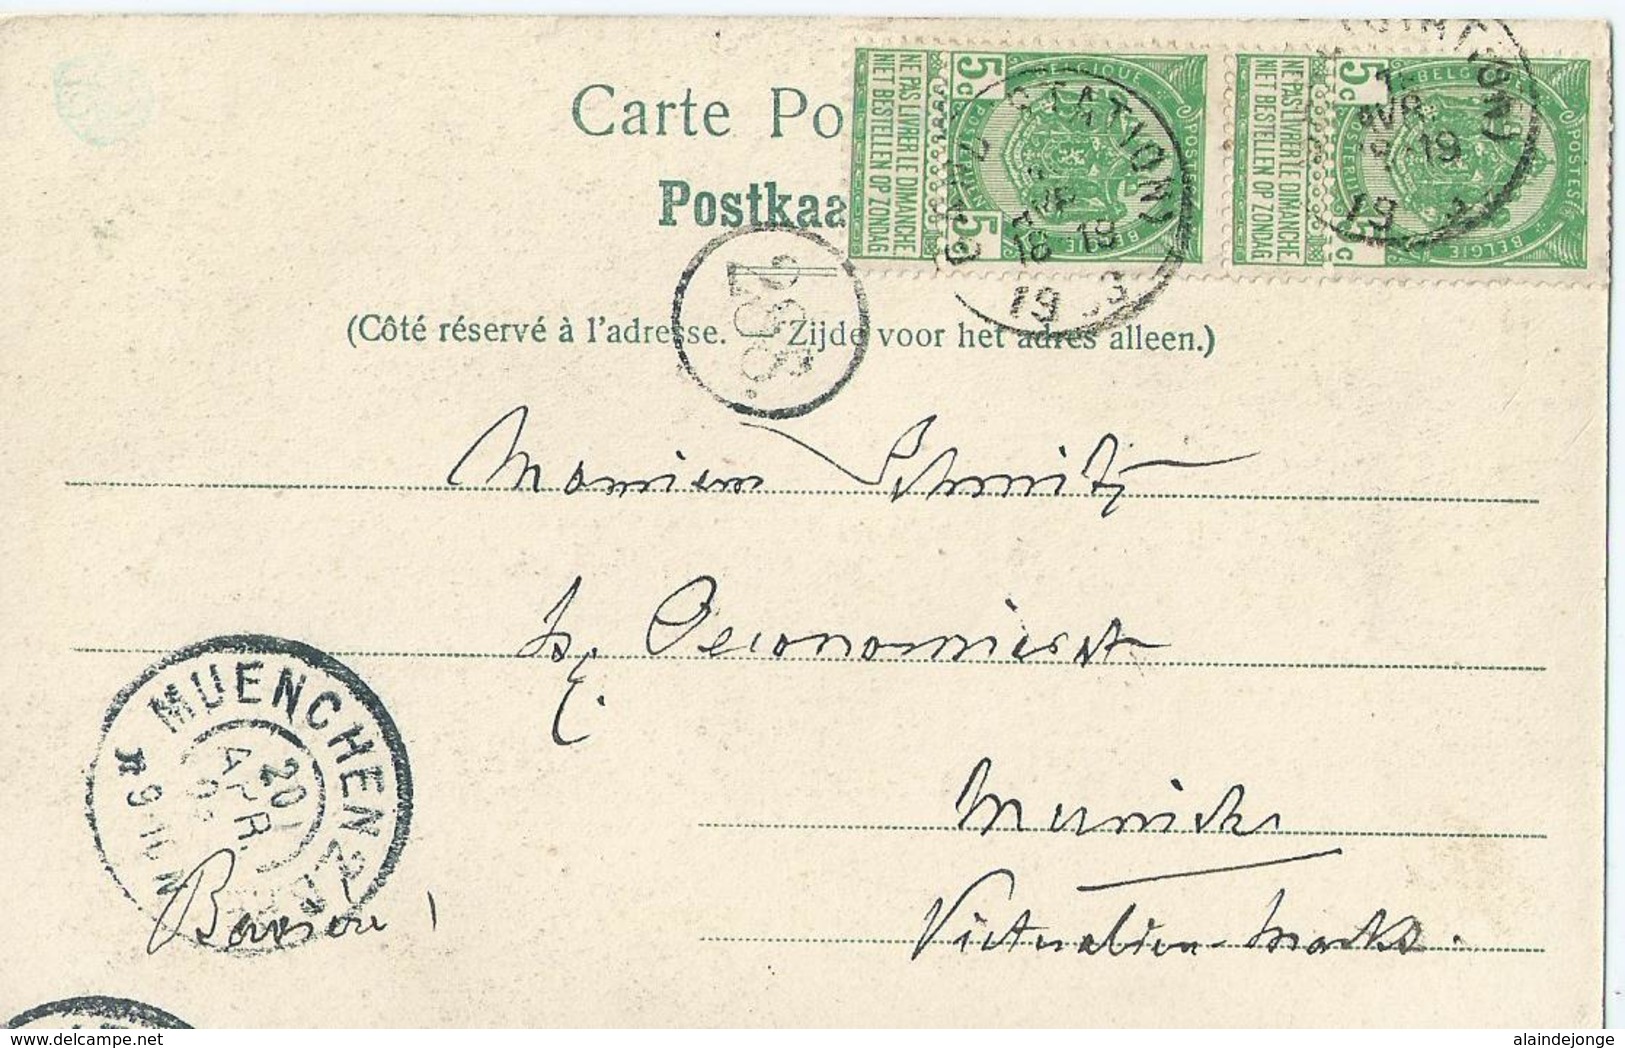 Carte Po
Postkaa
(Côté réservé à l'adresse. Zijde voor het adres alleen.)
NE PAS LIVRER LE DIMANCHE
NIET BESTELLEN OP ZONDAG
5c 5c
BELGIQUE POSTES
POSTERIJEN BELGIE
STATION)
AVR
18-19
19 3
NE PAS LIVRER LE DIMANCHE
NIET BESTELLEN OP ZONDAG
5c 5c
BELGIQUE POSTES
POSTERIJEN BELGIE
AVR
19
19
288.
Monsieur Schmitz
Oeconomierat
Munich
Victualien-Markt.
MUENCHEN 2
20
APR.
9-10 N
alaindejonge